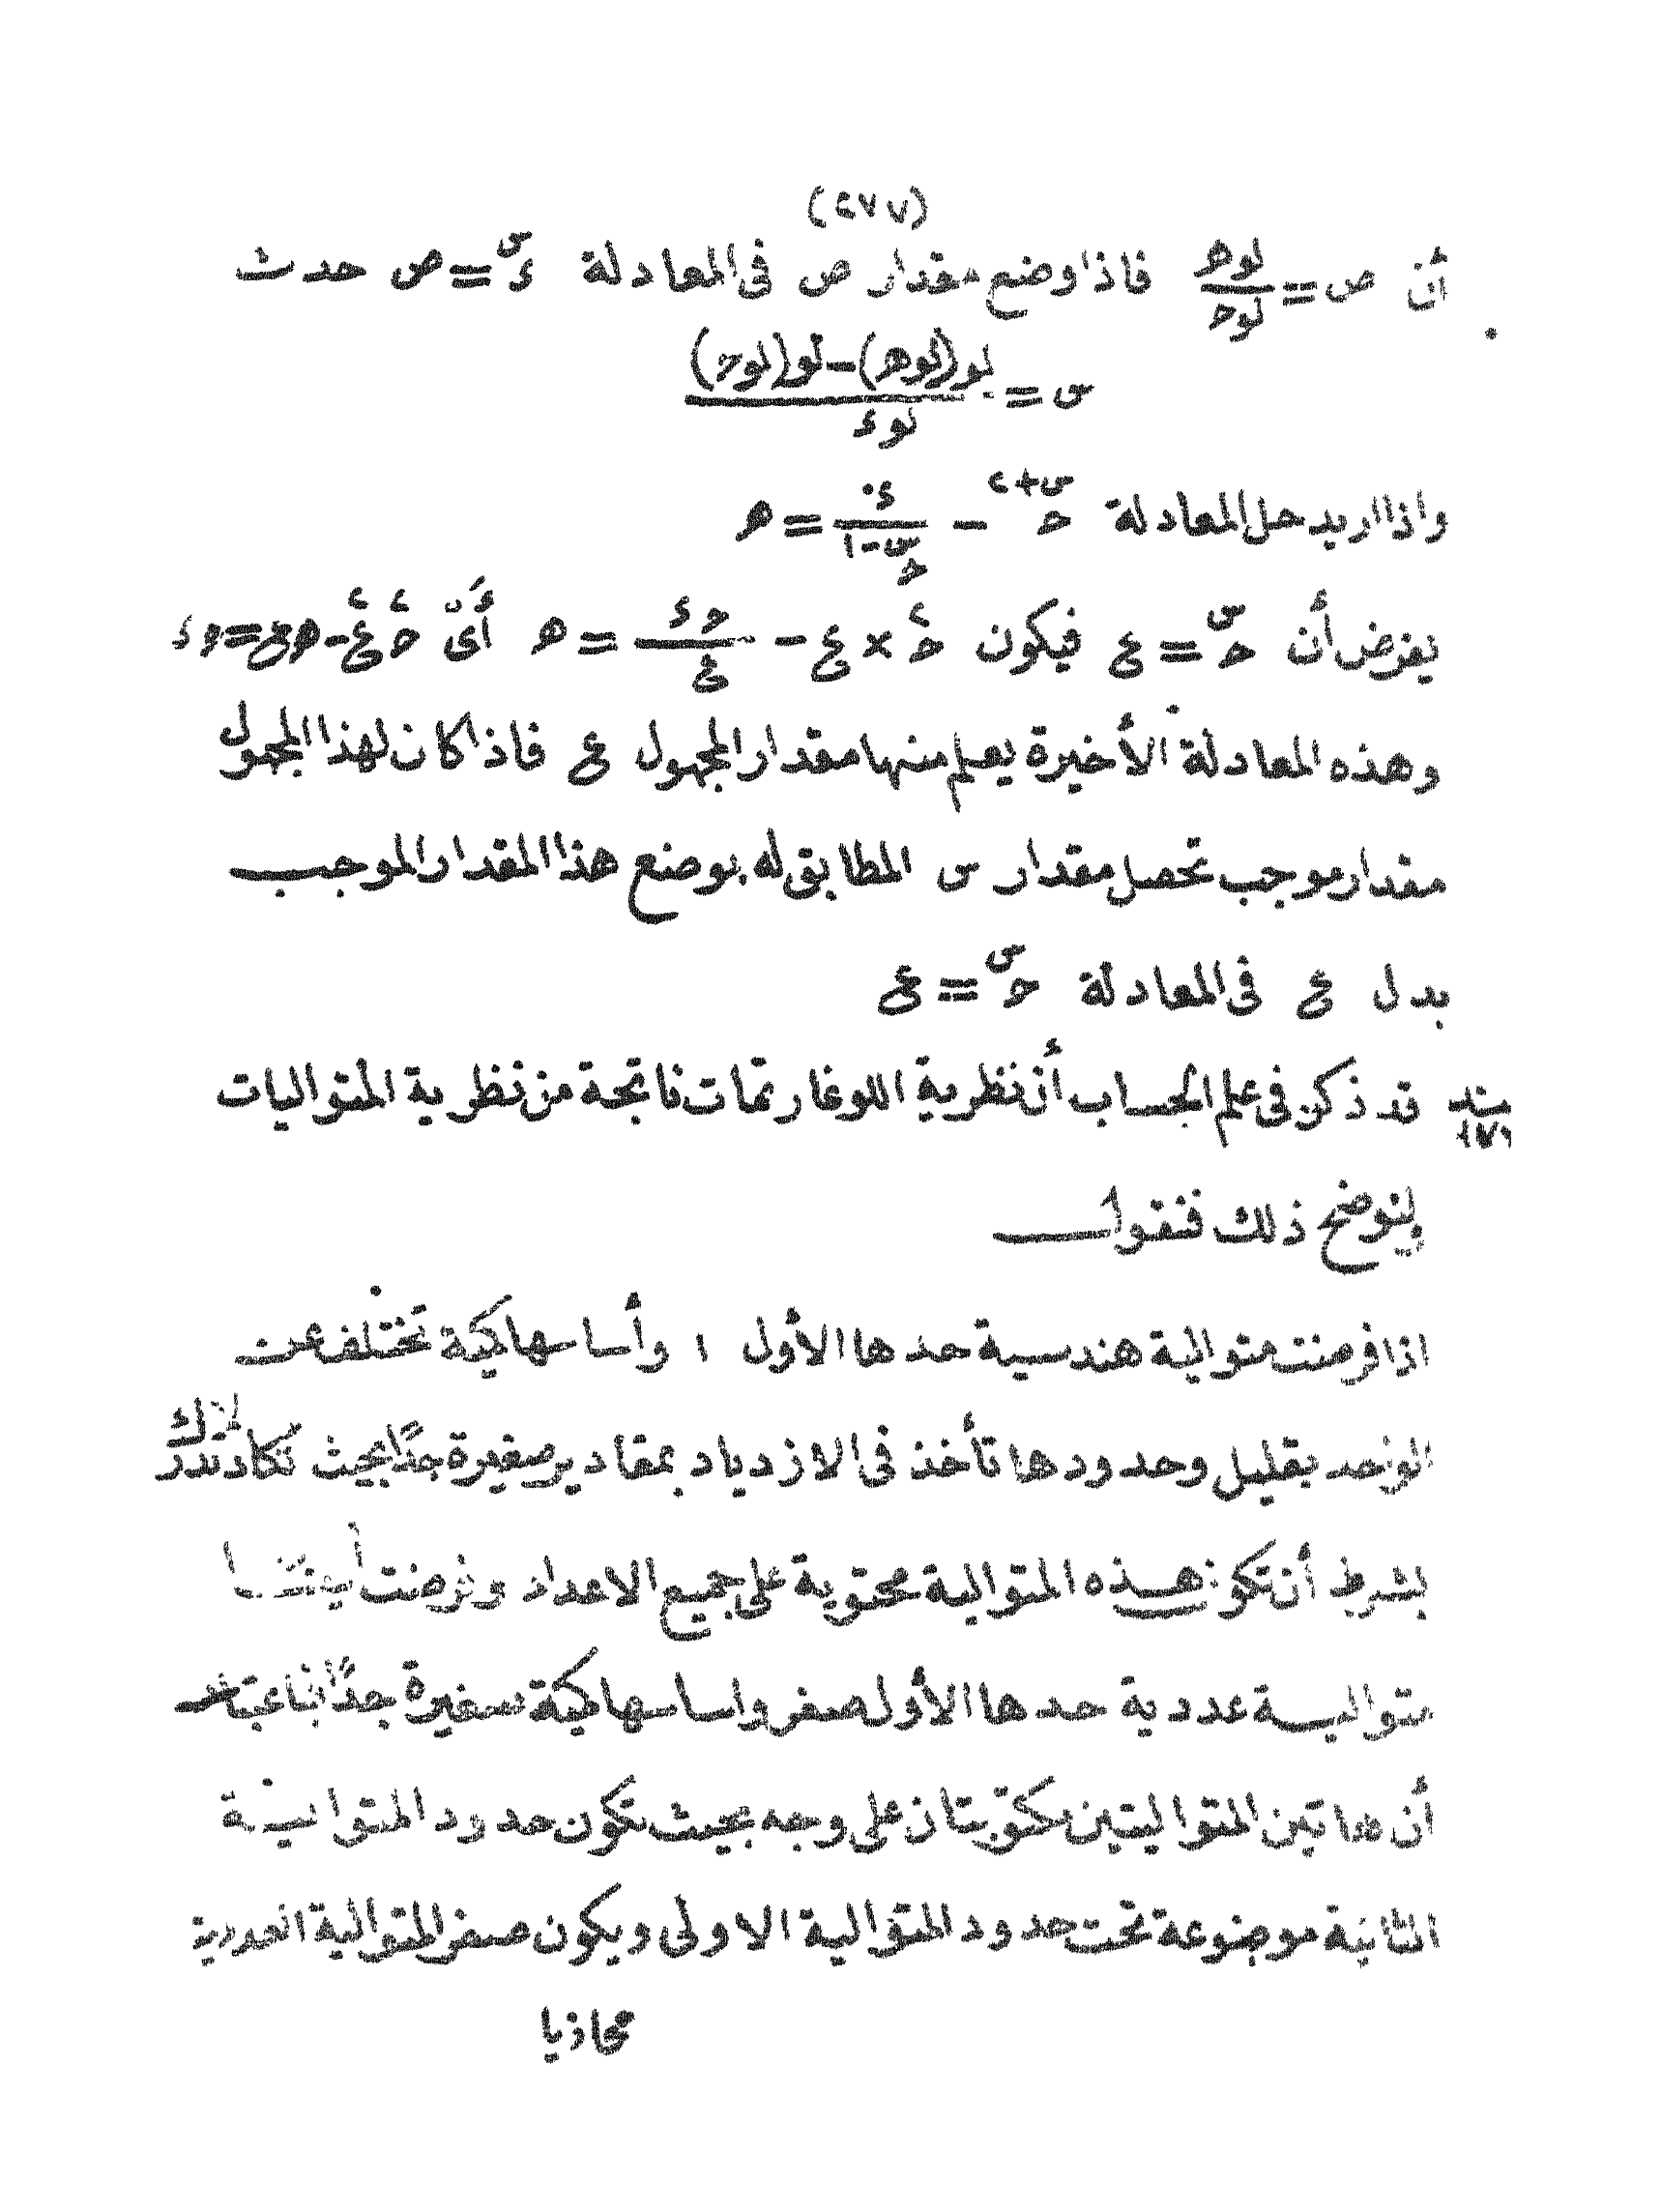 (٢٧٧)
أن ص = لوھ / لوح فاذا وضع مقدار ص فى المعادلة ء^س = ص حدث
س = لو(لوھ) − لو(لوح) / لوء
واذا اريد حل المعادلة ح^(س+٢) − ء / ح^(س−١) = ھ
يفرض أن ح^س = ع فيكون ح^٢ × ع − حء / ع = ھ أى ح^٢ع^٢ − ھع = حء
وهذه المعادلة الأخيرة يعلم منها مقدار المجهول ع فاذا كان لهذا المجهول
مقدار موجب تحصل مقدار س المطابق له بوضع هذا المقدار الموجب
بدل ع فى المعادلة ح^س = ع
بند قد ذكر فى علم الحساب أن نظرية اللوغارتمات ناتجة من نظرية المتواليات
ولنوضح ذلك فنقول
اذا فرضت متوالية هندسية حدها الأول ١ وأساسها كمية تختلف عن
الواحد بقليل وحدودها تأخذ فى الازدياد بمقادير صغيرة جدًا بحيث تكاد تدرك
بشرط أن تكون هذه المتوالية محتوية على جميع الاعداد وفرضت أيضا
متوالية عددية حدها الأول صفر واساسها كمية صغيرة جدًا باعتبار
أن هاتين المتواليتين مكتوبتان على وجه بحيث تكون حدود المتوالية
الثانية موضوعة تحت حدود المتوالية الاولى ويكون صفر المتوالية العددية
محاذيا